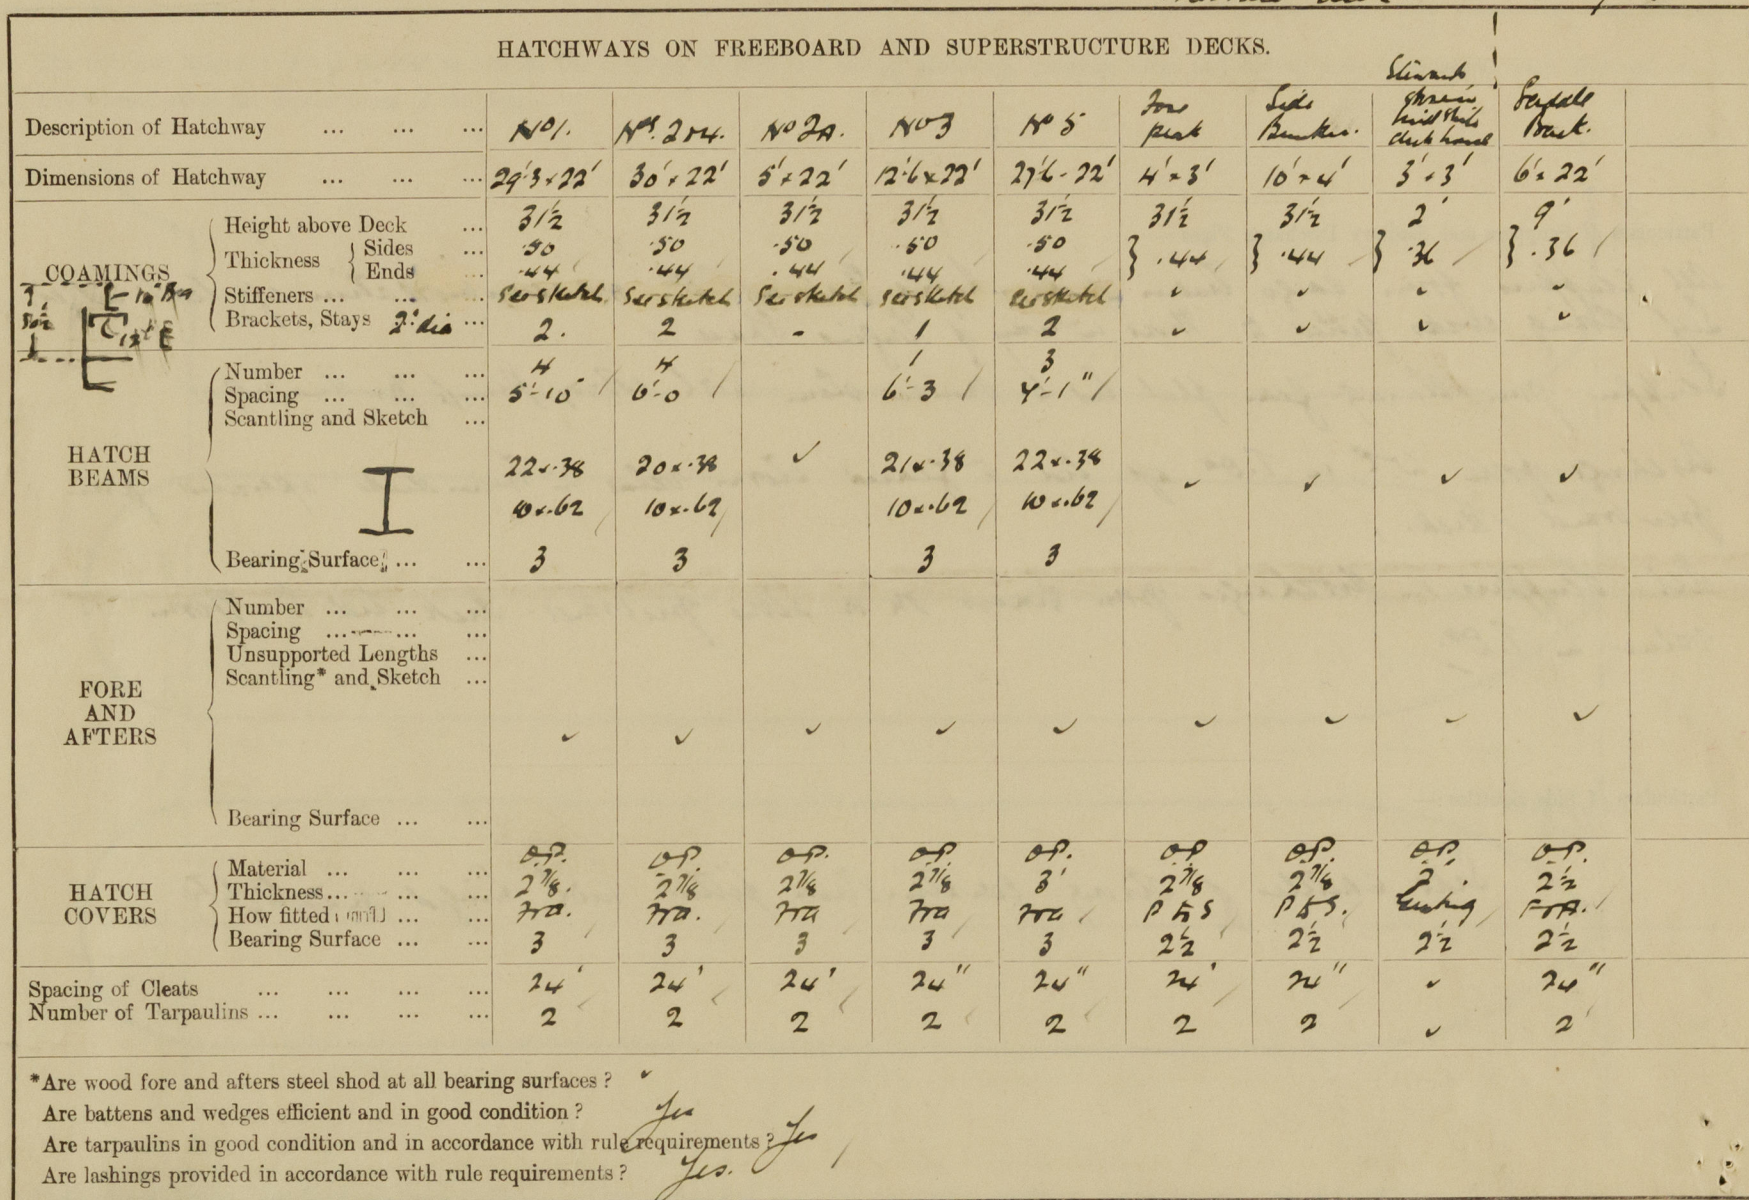 HATCHWAYS ON FREEBOARD AND SUPERSTRUCTURE DECKS.
Description of Hatchway ... ... ... No 1. Nos. 2 & 4. No 2A. No 3 No 5 Fore peak Side Bunker. Stewards midships deck house
Dimensions of Hatchway ... ... ... 29'3 × 22' 30' × 22' 5' × 22' 12'6 × 22' 27'6 - 22' 4' × 3' 10' × 4' 3' × 3' 6' × 22'
COAMINGS
Height above Deck ... 31½ 31½ 31½ 31½ 31½ 31½ 31½ 2' 9'
Thickness { Sides ... .50 .50 .50 .50 .50 } .44 } .44 } .36 } .36
Ends ... .44 .44 .44 .44 .44
Stiffeners ... ... ... See sketch See sketch See sketch See sketch See sketch ✓ ✓ ✓ ✓
Brackets, Stays 2" dia ... 2. 2 - 1 2 ✓ ✓ ✓ ✓
HATCH BEAMS
Number ... ... ... 4 4 1 3
Spacing ... ... ... 5'-10" 6'-0 6'-3 4'-1"
Scantling and Sketch ...
22 × .38 20 × .38 ✓ 21 × .38 22 × .38
10 × .62 10 × .62 10 × .62 10 × .62 ✓ ✓ ✓ ✓
Bearing Surface ... ... 3 3 3 3
FORE AND AFTERS
Number ... ... ...
Spacing ... ... ...
Unsupported Lengths ...
Scantling* and Sketch ...
✓ ✓ ✓ ✓ ✓ ✓ ✓ ✓ ✓
Bearing Surface ... ...
HATCH COVERS
Material ... ... ... O.P. O.P. O.P. O.P. O.P. O.P. O.P. O.P. O.P.
Thickness ... ... ... 2⅞. 2⅞ 2⅞ 2⅞ 3" 2⅞ 2⅞ 2" 2½
How fitted ... ... F&A. F&A. F&A F&A F&A P & S P & S. F&A.
Bearing Surface ... ... 3 3 3 3 3 2½ 2½ 2½ 2½
Spacing of Cleats ... ... ... ... 24" 24" 24" 24" 24" 24" 24" ✓ 24"
Number of Tarpaulins ... ... ... ... 2 2 2 2 2 2 2 ✓ 2
*Are wood fore and afters steel shod at all bearing surfaces ? ✓
Are battens and wedges efficient and in good condition ? Yes
Are tarpaulins in good condition and in accordance with rule requirements ? Yes
Are lashings provided in accordance with rule requirements ? Yes.